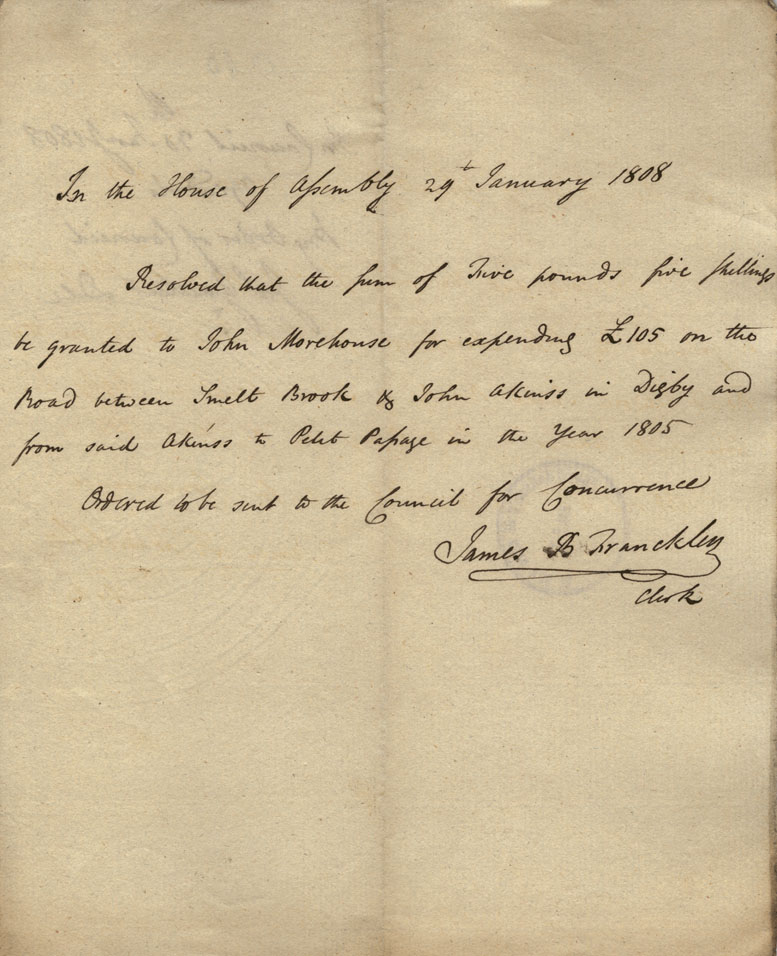 In the House of Assembly 29t January 1808
Resolved that the sum of Five pounds five shillings
be granted to John Morehouse for expending £105 on the
Road between Smelt Brook & John Akinss in Digby and
from said Akinss to Petit Passage in the Year 1805
Ordered to be sent to the Council for Concurrence
James B Franckley
Clerk